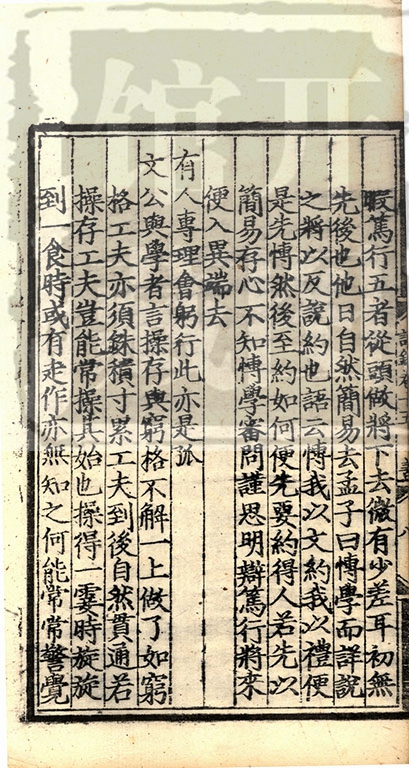 暇篤行五者從頭做將下去微有少差耳初無
先後也他日自然簡易去孟子曰愽學而詳說
之將以反說約也語云愽我以文約我以禮便
是先愽然後至約如何便先要約得人若先以
簡易存心不知愽學審問謹思明辯篤行將來
便入異端去
有人專理會躬行此亦是孤
文公與學者言操存與窮格不解一上做了如窮
格工夫亦須銖積寸累工夫到後自然貫通若
操存工夫豈能常操其始也操得一霎時旋旋
到一食時或有走作亦無知之何能常常警覺